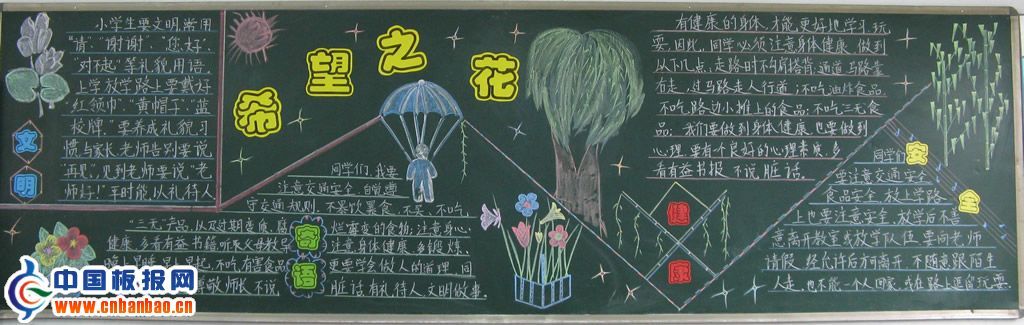 希望之花
文明
小学生要文明,常用
"请、""谢谢"、"您好、"
"对不起"等礼貌用语。
上学放学路上要戴好
红领巾、"黄帽子"、"蓝
校牌,"要养成礼貌习
惯与家长老师告别要说
"再见",见到老师要说:"老
师好!"平时能以礼待人
同学们,我要
注意交通安全,自觉遵
守交通规则,不暴饮暴食,不买、不吃
寄语
"三无"产品,从
健康,多看有益书籍,听从父母教导
早睡早起,不吃有害食品
敬师长,不说
烂霉变的食物;注意身心,
注意身体健康,多锻炼、
更要学会做人的道理,同
脏话,有礼待人,文明做事.
健康
有健康的身体,才能更好地学习、玩
耍,因此,同学必须注意身体健康,做到
从下几点、走路时不勾肩搭背,通道马路靠
右走,过马路走人行道;不吃油炸食品,
不吃路边小摊上的食品;不吃三无食
品;我们要做到身体健康,也要做到
心理,要有个良好的心理素质,多
看有益书报,不说脏话。
安全
同学们,
要注意交通安全
食品安全,校上学路
上也要注意安全,放学后不要
意离开教室或放学队伍,要向老师
请假,经允许后才可离开,不随意跟陌生
人走,也不能一个人回家,或在路上逗留玩耍.
中国板报网
www.cnbanbao.cn